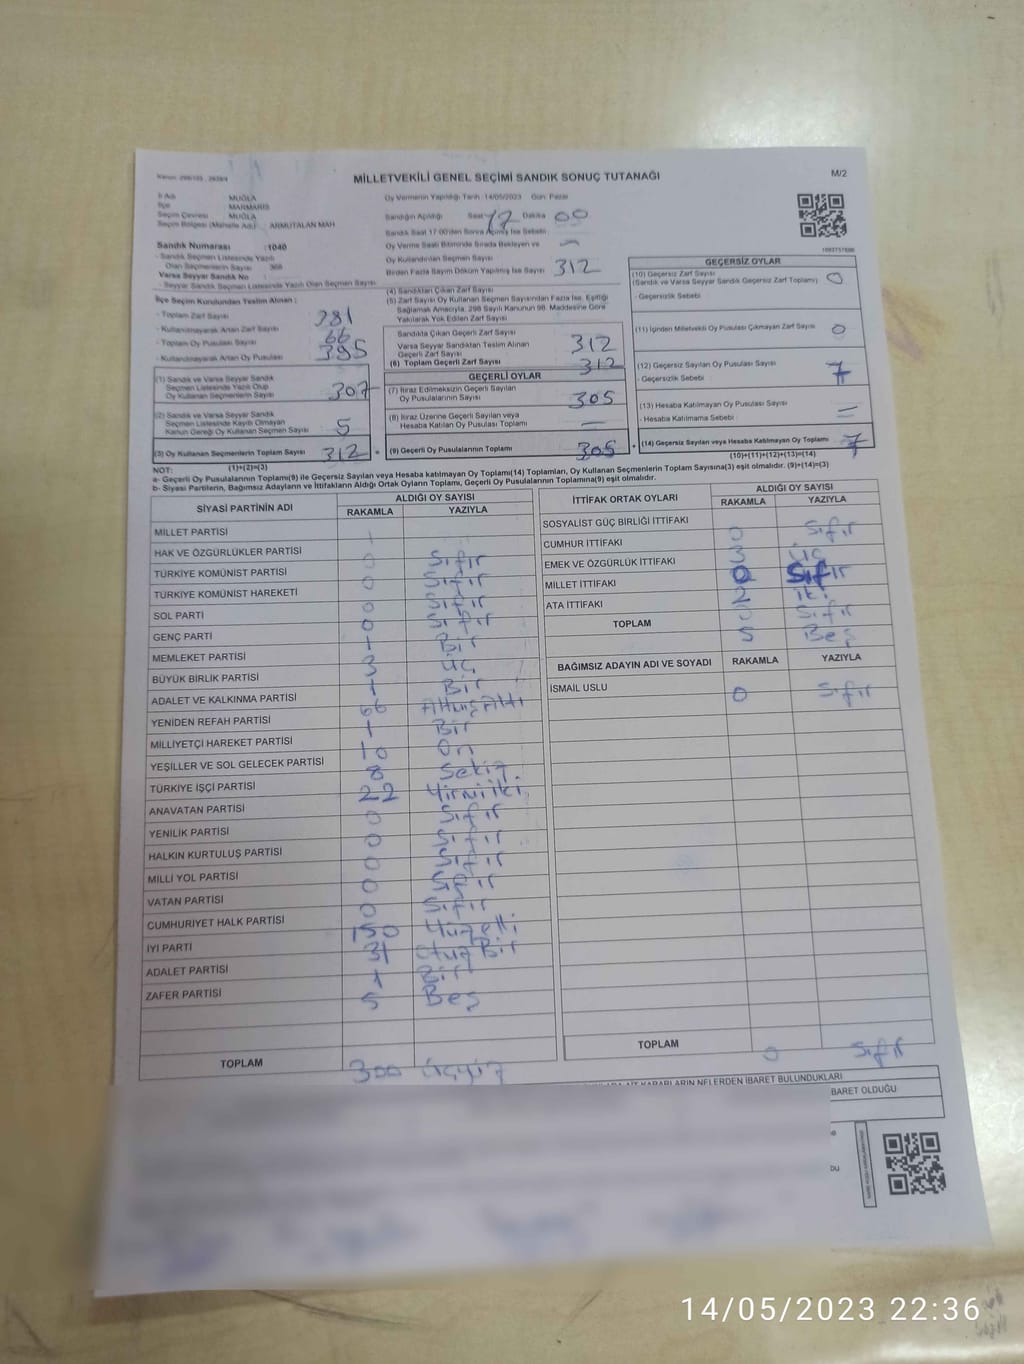 MİLLETVEKİLİ GENEL SEÇİMİ SANDIK SONUÇ TUTANAĞI
M/2
İl Adı MUĞLA
İlçe MARMARİS
Seçim Çevresi MUĞLA
Seçim Bölgesi (Mahalle Adı) ARMUTALAN MAH
Sandık Numarası :1040
- Sandık Seçmen Listesinde Yazılı
Olan Seçmenlerin Sayısı
Varsa Seyyar Sandık No
- Seyyar Sandık Seçmen Listesinde Yazılı Olan Seçmen Sayısı
İlçe Seçim Kurulundan Teslim Alınan :
- Toplam Zarf Sayısı 381
- Kullanılmayarak Artan Zarf Sayısı 66
- Toplam Oy Pusulası Sayısı 395
- Kullanılmayarak Artan Oy Pusulası
(1) Sandık ve Varsa Seyyar Sandık
Seçmen Listesinde Yazılı Olup
Oy Kullanan Seçmenlerin Sayısı 307
(2) Sandık ve Varsa Seyyar Sandık
Seçmen Listesinde Kayıtlı Olmayan
Kanun Gereği Oy Kullanan Seçmen Sayısı 5
(3) Oy Kullanan Seçmenlerin Toplam Sayısı 312
(1)+(2)=(3)
Oy Vermenin Yapıldığı Tarih :14/05/2023 Gün: Pazar
Sandığın Açıldığı Saat 17 Dakika 00
Sandık Saat 17:00'den Sonra Açılmış İse Sebebi
Oy Verme Saati Bitiminde Sırada Bekleyen ve
Oy Kullandırılan Seçmen Sayısı
Birden Fazla Sayım Döküm Yapılmış İse Sayısı 312
(4) Sandıktan Çıkan Zarf Sayısı
(5) Zarf Sayısı Oy Kullanan Seçmen Sayısından Fazla İse, Eşitliği
Sağlamak Amacıyla, 298 Sayılı Kanunun 98. Maddesine Göre
Yakılarak Yok Edilen Zarf Sayısı
Sandıkta Çıkan Geçerli Zarf Sayısı 312
Varsa Seyyar Sandıktan Teslim Alınan
Geçerli Zarf Sayısı
(6) Toplam Geçerli Zarf Sayısı 312
GEÇERLİ OYLAR
(7) İtiraz Edilmeksizin Geçerli Sayılan
Oy Pusulalarının Sayısı 305
(8) İtiraz Üzerine Geçerli Sayılan veya
Hesaba Katılan Oy Pusulası Toplamı
(9) Geçerli Oy Pusulalarının Toplamı 305
GEÇERSİZ OYLAR
(10) Geçersiz Zarf Sayısı 0
(Sandık ve Varsa Seyyar Sandık Geçersiz Zarf Toplamı)
- Geçersizlik Sebebi
(11) İçinden Milletvekili Oy Pusulası Çıkmayan Zarf Sayısı 0
(12) Geçersiz Sayılan Oy Pusulası Sayısı 7
- Geçersizlik Sebebi
(13) Hesaba Katılmayan Oy Pusulası Sayısı
- Hesaba Katılmama Sebebi
(14) Geçersiz Sayılan veya Hesaba Katılmayan Oy Toplamı 7
(10)+(11)+(12)+(13)=(14)
NOT:
a- Geçerli Oy Pusulalarının Toplamı(9) ile Geçersiz Sayılan veya Hesaba katılmayan Oy Toplamı(14) Toplamları, Oy Kullanan Seçmenlerin Toplam Sayısına(3) eşit olmalıdır. (9)+(14)=(3)
b- Siyasi Partilerin, Bağımsız Adayların ve İttifakların Aldığı Ortak Oyların Toplamı, Geçerli Oy Pusulalarının Toplamına(9) eşit olmalıdır.
SİYASİ PARTİNİN ADI ALDIĞI OY SAYISI
RAKAMLA YAZIYLA
MİLLET PARTİSİ 1
HAK VE ÖZGÜRLÜKLER PARTİSİ 0 Sıfır
TÜRKİYE KOMÜNİST PARTİSİ 0 Sıfır
TÜRKİYE KOMÜNİST HAREKETİ 0 Sıfır
SOL PARTİ 0 Sıfır
GENÇ PARTİ 1 Bir
MEMLEKET PARTİSİ 3 Üç
BÜYÜK BİRLİK PARTİSİ 1 Bir
ADALET VE KALKINMA PARTİSİ 66 Altmış Altı
YENİDEN REFAH PARTİSİ 1 Bir
MİLLİYETÇİ HAREKET PARTİSİ 10 On
YEŞİLLER VE SOL GELECEK PARTİSİ 8 Sekiz
TÜRKİYE İŞÇİ PARTİSİ 22 Yirmi iki
ANAVATAN PARTİSİ 0 Sıfır
YENİLİK PARTİSİ 0 Sıfır
HALKIN KURTULUŞ PARTİSİ 0 Sıfır
MİLLİ YOL PARTİSİ 0 Sıfır
VATAN PARTİSİ 0 Sıfır
CUMHURİYET HALK PARTİSİ 150 Yüzelli
İYİ PARTİ 31 Otuz Bir
ADALET PARTİSİ 1 Bir
ZAFER PARTİSİ 5 Beş
TOPLAM 300 Üçyüz
İTTİFAK ORTAK OYLARI ALDIĞI OY SAYISI
RAKAMLA YAZIYLA
SOSYALİST GÜÇ BİRLİĞİ İTTİFAKI 0 Sıfır
CUMHUR İTTİFAKI 3 Üç
EMEK VE ÖZGÜRLÜK İTTİFAKI 0 Sıfır
MİLLET İTTİFAKI 2 iki
ATA İTTİFAKI 0 Sıfır
TOPLAM 5 Beş
BAĞIMSIZ ADAYIN ADI VE SOYADI RAKAMLA YAZIYLA
İSMAİL USLU 0 Sıfır
TOPLAM 0 Sıfır
KARARLARIN NELERDEN İBARET BULUNDUKLARI
BARET OLDUĞU
14/05/2023 22:36